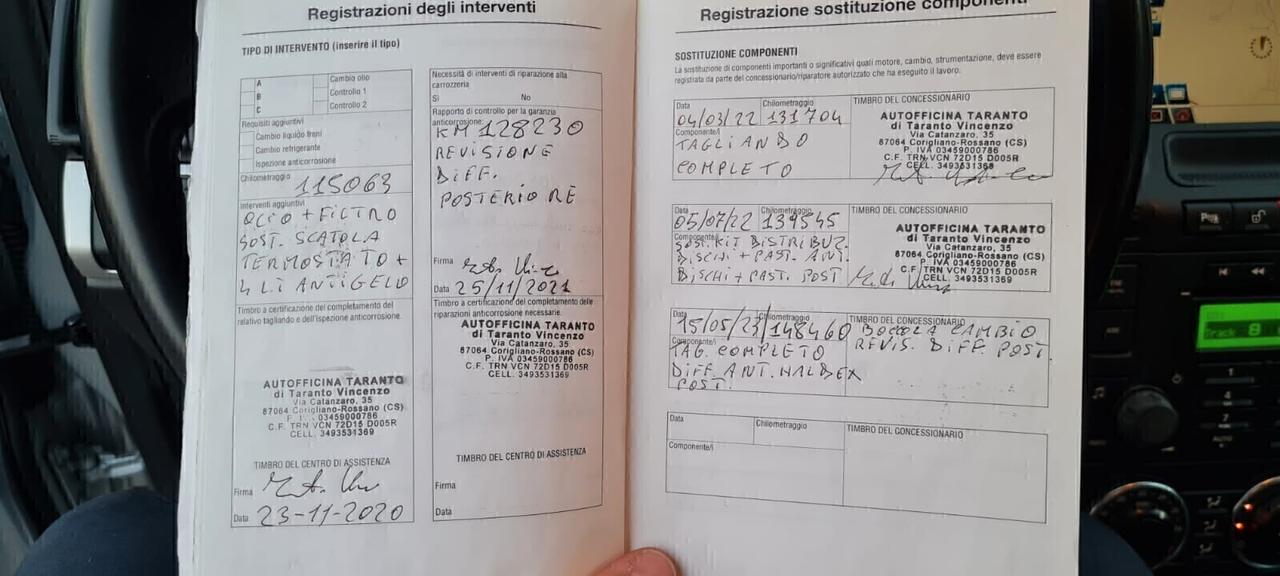 Registrazioni degli interventi
TIPO DI INTERVENTO (inserire il tipo)
A
B
C
Cambio olio
Controllo 1
Controllo 2
Requisiti aggiuntivi
Cambio liquido freni
Cambio refrigerante
Ispezione anticorrosione
Chilometraggio
115063
Interventi aggiuntivi
OLIO + FILTRO
SOST. SCATOLA
TERMOSTATO +
4 LI ANTIGELO
Timbro a certificazione del completamento del
relativo tagliando e dell'ispezione anticorrosione.
AUTOFFICINA TARANTO
di Taranto Vincenzo
Via Catanzaro, 35
87064 Corigliano-Rossano (CS)
P. IVA 03459000786
C.F. TRN VCN 72D15 D005R
CELL. 3493531369
TIMBRO DEL CENTRO DI ASSISTENZA
Firma
Data 23-11-2020
Necessità di interventi di riparazione alla
carrozzeria
Sì No
Rapporto di controllo per la garanzia
anticorrosione:
KM 128230
REVISIONE
DIFF.
POSTERIORE
Firma
Data 25/11/2021
Timbro a certificazione del completamento delle
riparazioni anticorrosione necessarie.
AUTOFFICINA TARANTO
di Taranto Vincenzo
Via Catanzaro, 35
87064 Corigliano-Rossano (CS)
P. IVA 03459000786
C.F. TRN VCN 72D15 D005R
CELL. 3493531369
TIMBRO DEL CENTRO DI ASSISTENZA
Firma
Data
Registrazione sostituzione componenti
SOSTITUZIONE COMPONENTI
La sostituzione di componenti importanti o significativi quali motore, cambio, strumentazione, deve essere
registrata da parte del concessionario/riparatore autorizzato che ha eseguito il lavoro.
Data
04/03/22
Chilometraggio
131704
TIMBRO DEL CONCESSIONARIO
Componente/i
TAGLIANDO
COMPLETO
AUTOFFICINA TARANTO
di Taranto Vincenzo
Via Catanzaro, 35
87064 Corigliano-Rossano (CS)
P. IVA 03459000786
C.F. TRN VCN 72D15 D005R
CELL. 3493531369
Data
05/07/22
Chilometraggio
139545
TIMBRO DEL CONCESSIONARIO
Componente/i
SOST. KIT DISTRIBUZ.
DISCHI + PAST. ANT.
DISCHI + PAST. POST
AUTOFFICINA TARANTO
di Taranto Vincenzo
Via Catanzaro, 35
87064 Corigliano-Rossano (CS)
P. IVA 03459000786
C.F. TRN VCN 72D15 D005R
CELL. 3493531369
Data
15/05/23
Chilometraggio
148460
TIMBRO DEL CONCESSIONARIO
Componente/i
TAG. COMPLETO
DIFF. ANT. HALDEX
POST.
BOCCOLA CAMBIO
REVIS. DIFF. POST.
Data
Chilometraggio
TIMBRO DEL CONCESSIONARIO
Componente/i
Track 8
1
4
7